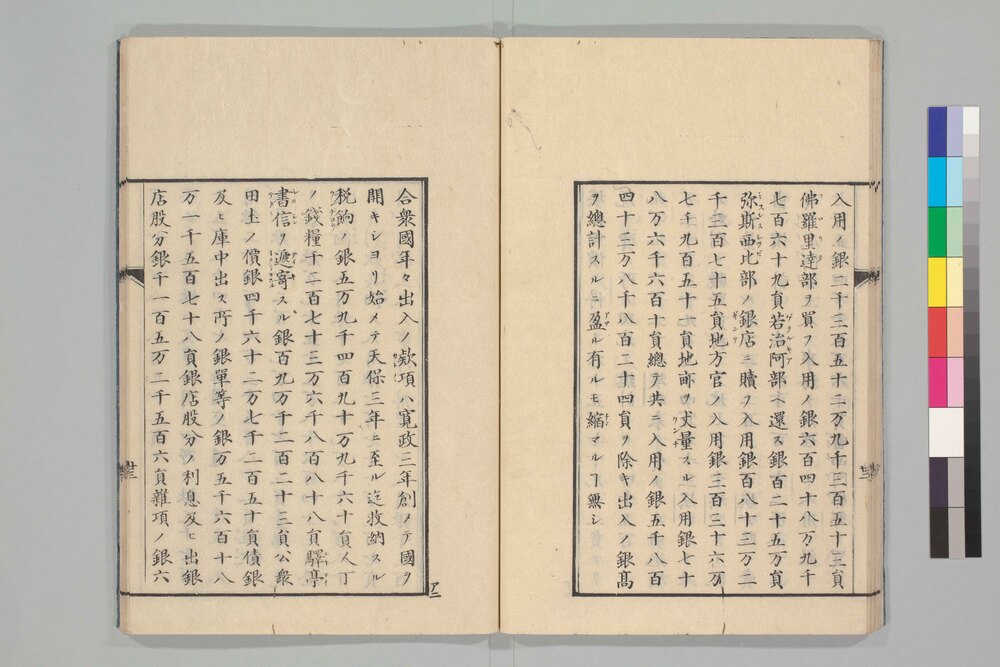 入用ノ銀二千三百五十二万九千三百五十三員
佛羅里達部ヲ買フ入用ノ銀六百四十八万九千
七百六十九員若治阿部ヘ還ス銀百二十五万員
弥斯西比部ノ銀店ニ贖フ入用銀百八十三万二
千三百七十五員地方官ノ入用銀三百三十六万
七千九百五十一員地畝ヲ丈量スル入用銀七十
八万六千六百十員總テ共ニ入用ノ銀五千八百
四十三万八千八百二十四員ヲ除キ出入ノ銀高
ヲ總計スルニ盈ル有ルモ縮マルヿ無シ
合衆國年々出入ノ欵項ハ寛政三年創メテ國ヲ
開キシヨリ始メテ天保三年ニ至ル迄收納スル
税餉ノ銀五万九千四百九十万九千六十員人丁
ノ錢糧千二百七十三万六千八百八十八員驛亭
書信ヲ遞寄スル銀百九万千二百二十三員公衆
田土ノ價銀四千六十二万七千二百五十員債銀
及ヒ庫中出ス所ノ銀單等ノ銀万五千六百十八
万一千五百七十八員銀店股分ノ利息及ヒ出銀
店股分銀千一百五万二千五百六員雜項ノ銀六